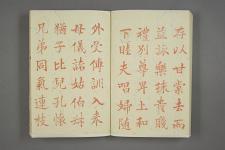 存以甘棠去而
益詠樂殊貴賤
禮別尊卑上和
下睦夫唱婦隨
外受傅訓入奉
母儀諸姑伯叔
猶子比兒孔懷
兄弟同氣連枝